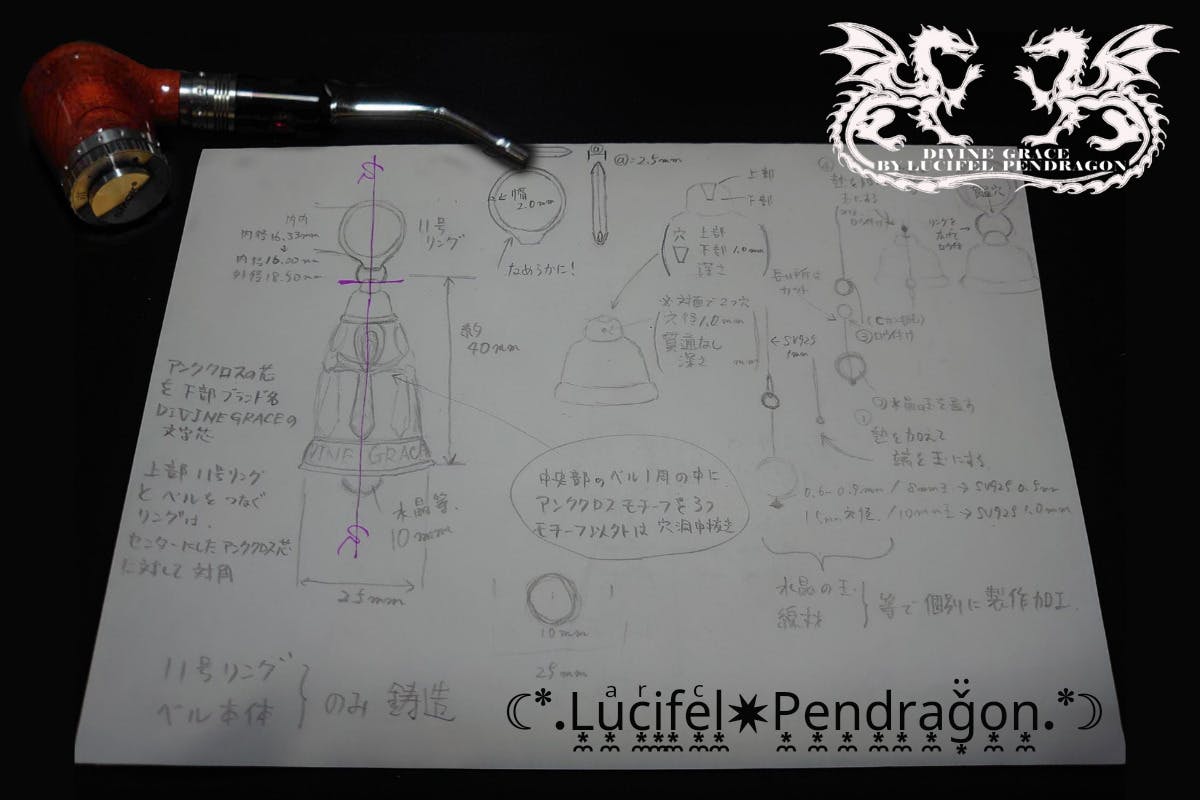 DIVINE GRACE
BY LUCIFEL PENDRAGON
@=2.5mm
11号
リング
内径16.33mm
内径16.00mm
外径18.50mm
幅
2.0mm
なめらかに!
上部
下部
穴 上部
下部 1.0mm
深さ
※対面で2つ穴
穴径1.0mm
貫通なし
深さ mm
約
40mm
←SV925
1mm
リングを
カット
アンククロスの芯
を下部ブランド名
DIVINE GRACEの
文字芯
上部11号リング
とベルをつなぐ
リングは、
センターにしたアンククロス芯
に対して対角
VINE GRACE
水晶等.
10mm
25mm
中央部のベル1周の中に
アンククロスモチーフを3つ
モチーフ以外は穴洞中抜き
①
熱を加えて
端を玉にする
0.6-0.9mm / 8mm玉→SV925 0.5mm
/10mm玉→SV925 1.0mm
水晶の玉
線材
等で個別に製作加工.
10mm
25mm
11号リング
ベル本体
のみ 鋳造
☾*.Lucifel✷Pendragon.*☽